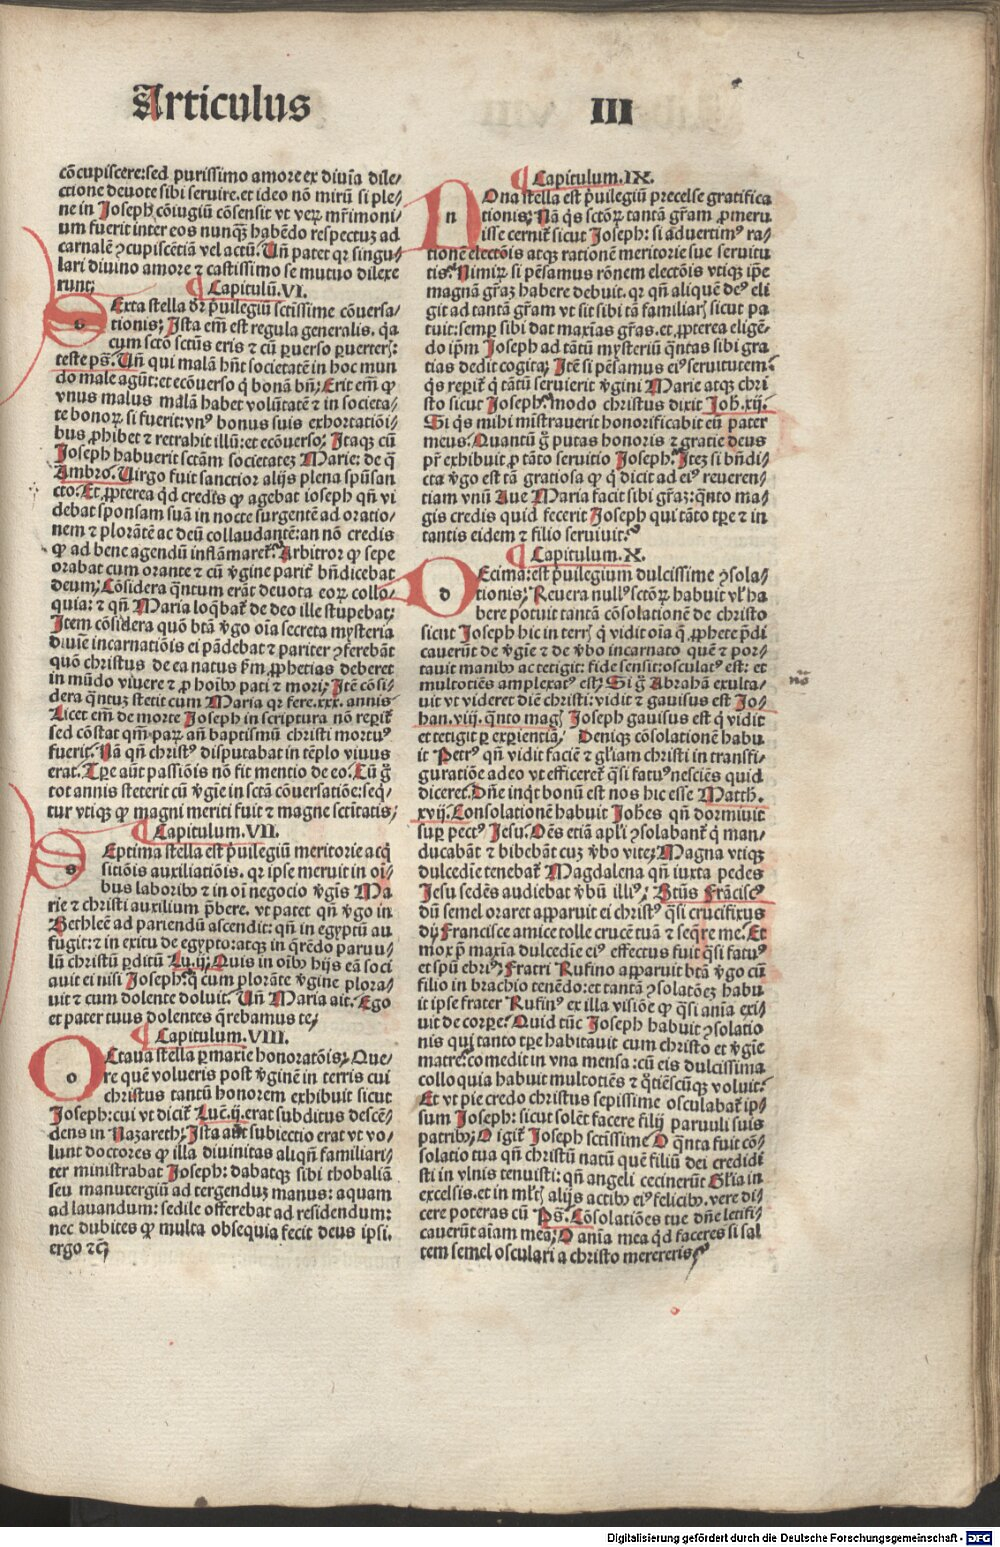 Articulus III
cōcupiscere: sed purissimo amore ex diuīa dile/
ctione deuote sibi seruire. et ideo nō mirū si ple/
ne in Joseph cōiugiū cōsensit vt veꝝ mr̄imoni/
um fuerit inter eos nunqꝫ habēdo respectuꝫ ad
carnalē ꝯcupiscētiā vel actū. Un̄ patet qꝛ singu/
lari diuino amore ⁊ castissimo se mutuo dilexe
runt;
¶ Capitulū. VI.
Sexta stella dr̄ p̄uilegiū sctissime cōuersa/
tionis; Ista em̄ est regula generalis. qꝛ
cum scto sctūs eris ⁊ cū ꝑuerso ꝑuerteris:
teste ps̄. Un̄ qui malā hn̄t societatē in hoc mun
do male agūt: et ecōuerso q̄ bonā hn̄; Erit em̄ ꝙ
vnus malus malā habet volūtatē ⁊ in societa/
te bonoꝝ si fuerit: vnꝰ bonus suis exhortatiōi/
bus ꝓhibet ⁊ retrahit illū: et ecōuerso; Itaqꝫ cū
Joseph habuerit sctām societateꝫ Marie: de q̄
Ambro. Uirgo fuit sanctior alijs plena spūsan
cto. Et ꝓpterea qd̄ credis ꝙ agebat ioseph qn̄ vi
debat sponsam suā in nocte surgentē ad oratio/
nem ⁊ plorātē ac deū collaudantē: an nō credis
ꝙ ad bene agendū inflāmaret̄. Arbitror ꝙ sepe
orabat cum orante ⁊ cū v̄gine parit̄ bn̄dicebat
deum; Cōsidera qn̄tum erāt deuota eoꝝ collo
quia: ⁊ qn̄ Maria loq̄bat̄ de deo ille stupebat;
Item cōsidera quō btā v̄go oīa secreta mysteria
diuīe incarnatiōis ei pādebat ⁊ pariter ꝯferebāt
quō christus de ea natus ẜm ꝓphetias deberet
in mūdo viuere ⁊ ꝓ hoībꝰ pati ⁊ mori; Itē cōsi/
dera qn̄tuꝫ stetit cum Maria qꝛ fere. xxx. annis
Licet em̄ de morte Joseph in scriptura nō reperit̄
sed cōstat qm̄ paꝝ an̄ baptismū christi mortuꝰ
fuerit. Nā qn̄ christꝰ disputabat in tēplo viuus
erat. Tp̄e aūt passiōis nō fit mentio de eo. Cū g̊
tot annis steterit cū v̄gie in sctā cōuersatiōe: seq̄/
tur vtiqꝫ ꝙ magni meriti fuit ⁊ magne sctitatis;
¶ Capitulum. VII.
Septima stella est p̄uilegiū meritorie acq̄
sitiōis auxiliatiōis. qꝛ ipse meruit in oī/
bus laboribꝰ ⁊ in oī negocio v̄gis Ma
rie ⁊ christi auxilium p̄bere. vt patet qn̄ v̄go in
Bethleē ad pariendū ascendit: qn̄ in egyptū au
fugit: ⁊ in exitu de egypto: atqꝫ in q̄rēdo paruu/
lū christū ꝑditū Lu. ij; Quis in oībꝰ hijs eā soci
auit ei nisi Joseph: q̄ cum plorāte v̄gine plora/
uit ⁊ cum dolente doluit. Un̄ Maria ait. Ego
et pater tuus dolentes q̄rebamus te;
¶ Capitulum. VIII.
Octaua stella ꝑmaxie honoratōis; Que/
re quē volueris post v̄ginē in terris cui
christus tantū honorem exhibuit sicut
Joseph: cui vt dicit̄ Luc̄. ij. erat subditus descē/
dens in Nazareth; Ista aūt subiectio erat vt vo/
lunt doctores ꝙ illa diuinitas aliqn̄ familiari/
ter ministrabat Joseph: dabatqꝫ sibi thobaliā
seu manutergiū ad tergenduꝫ manus: aquam
ad lauandum: sedile offerebat ad residendum:
nec dubites ꝙ multa obsequia fecit deus ipsi.
ergo ⁊cꝫ
¶ Capitulum. IX.
Nona stella est p̄uilegiū precelse gratifica
tionis; Nā q̄s sctōꝝ tantā gr̄am ꝓmeru
isse cernit̄ sicut Joseph: si aduertimꝰ ra/
tionē electōis atqꝫ rationē meritorie sue seruitu
tis. Nimiꝝ si pēsamus rōnem electōis vtiqꝫ ip̄e
magnā gr̄aꝫ habere debuit. qꝛ qn̄ aliquē deꝰ eli
git ad tantā gr̄am vt sit sibi tā familiaris sicut pa
tuit: semꝑ sibi dat maxīas gr̄as. et ꝓpterea eligē/
do ip̄m Joseph ad tātū mysteriū qn̄tas sibi gra
tias dedit cogita; Itē si pēsamus eiꝰ seruitutem:
q̄s reperit̄ q̄ tātū seruierit v̄gini Marie atqꝫ chri
sto sicut Joseph. modo christus dixit Joh̄. xij.
Si q̄s mihi mīstrauerit honorificabit eū pater
meus. Quantū g̊ putas honoris ⁊ gratie deus
pr̄ exhibuit ꝓ tāto seruitio Joseph. Iteꝫ si bn̄di/
cta v̄go est tā gratiosa ꝙ q̄ dicit ad eiꝰ reueren/
tiam vnū Aue Maria facit sibi gr̄aꝫ: qn̄to ma/
gis credis quid fecerit Joseph qui tāto tp̄e ⁊ in
tantis eidem ⁊ filio seruiuit.
¶ Capitulum. X.
Decima: est p̄uilegium dulcissime ꝯsola/
tionis; Reuera nullꝰ sctōꝝ habuit vl̄ ha
bere potuit tantā cōsolationē de christo
sicut Joseph hic in terris q̄ vidit oīa q̄ ꝓphete p̄di
cauerūt de v̄gīe ⁊ de v̄bo incarnato quē ⁊ por/
tauit manibꝰ ac tetigit: fide sensit: osculatꝰ est: et
multotiēs amplexatꝰ est; Si g̊ Abrahā exulta/
uit vt videret diē christi: vidit ⁊ gauisus est Jo/
han. viij. qn̄to magis Joseph gauisus est q̄ vidit
et tetigit ꝑ exꝑientiā. Denique cōsolationē habu
it Petrꝰ qn̄ vidit faciē ⁊ gl̄iam christi in transfi/
guratiōe adeo vt efficeret̄ q̄si fatuꝰ nesciēs quid
diceret. Dn̄e inq̄t bonū est nos hic esse Matth.
xvij. Consolationē habuit Joh̄es qn̄ dormiuit
suꝑ pectꝰ Jesu. Oēs etiā apl̄i ꝯsolabant̄ q̄ man/
ducabāt ⁊ bibebāt cuꝫ v̄bo vite; Magna vtiqꝫ
dulcedīe tenebat̄ Magdalena qn̄ iuxta pedes
Jesu sedēs audiebat v̄bū illiꝰ; Btūs Frāciscꝰ
dū semel oraret apparuit ei christꝰ q̄si crucifixus
dīj Francisce amice tolle crucē tuā ⁊ seq̄re me. Et
mox p̄ maxīa dulcedīe eiꝰ effectus fuit q̄si fatuꝰ
et spū ebriꝰ; Fratri Rufino apparuit btā v̄go cū
filio in brachio tenēdo: et tantā ꝯsolatōeꝫ habu
it ipse frater Rufinꝰ ex illa visiōe ꝙ q̄si anīa exi/
uit de corꝑe. Quid tūc Joseph habuit ꝯsolatio
nis qui tanto tꝑe habitauit cum christo et v̄gīe
matre: comedit in vna mensa: cū eis dulcissima
colloquia habuit multotiēs ⁊ q̄tiēscūqꝫ voluit:
Et vt pie credo christus sepissime osculabat̄ ip/
sum Joseph: sicut solēt facere filij paruuli suis
patribꝰ; O igit̄ Joseph sctissime O qn̄ta fuit cō/
solatio tua qn̄ christū natū quē filiū dei credidi
sti in vlnis tenuisti: qn̄ angeli cecinerūt Gl̄ia in
excelsis. et in ml̄tis alijs actibꝰ eiꝰ felicibꝰ. vere di/
cere poteras cū Ps̄. Cōsolatiōes tue dn̄e letifi/
cauerūt aīam meā; O anīa mea qd̄ faceres si sal
tem semel osculari a christo merereris
nō
Digitalisierung gefördert durch die Deutsche Forschungsgemeinschaft - DFG